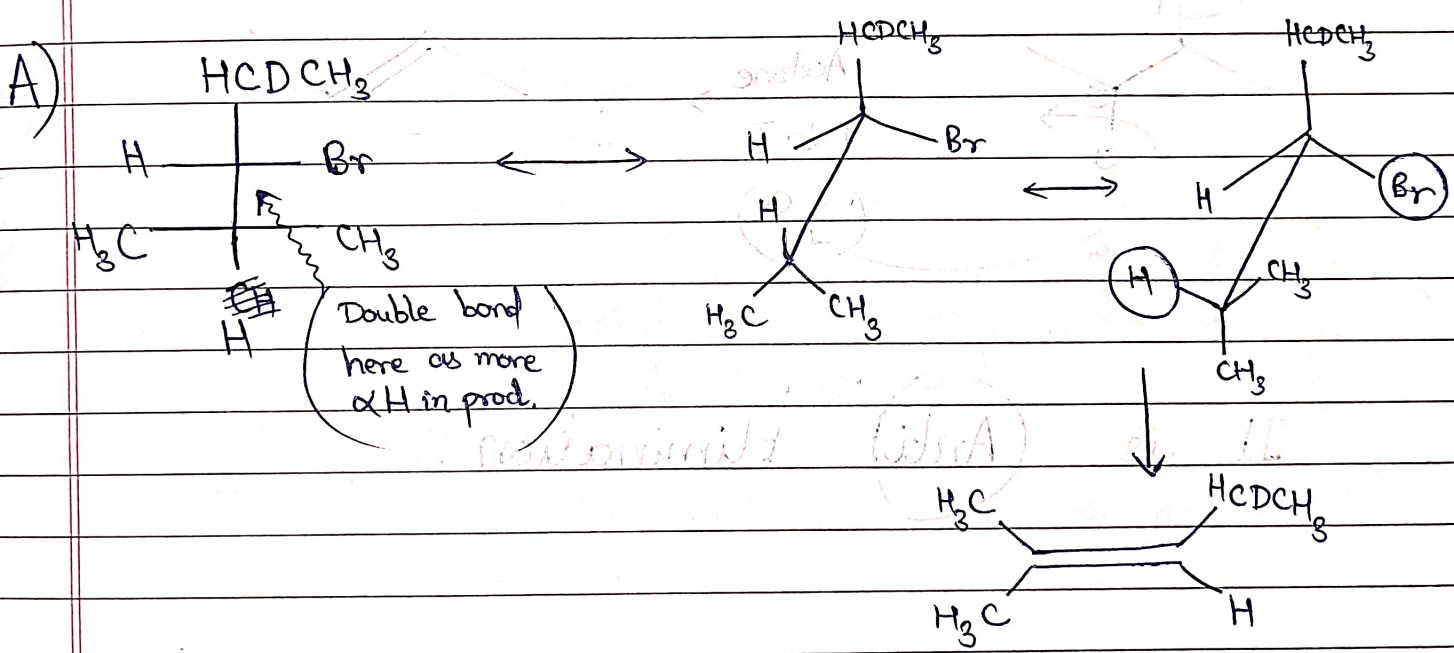 A)
HCDCH₃
H Br
H₃C CH₃
H
Double bond
here as more
αH in prod.
HCDCH₃
H Br
H
H₃C CH₃
HCDCH₃
H Br
H CH₃
CH₃
H₃C HCDCH₃
H₃C H